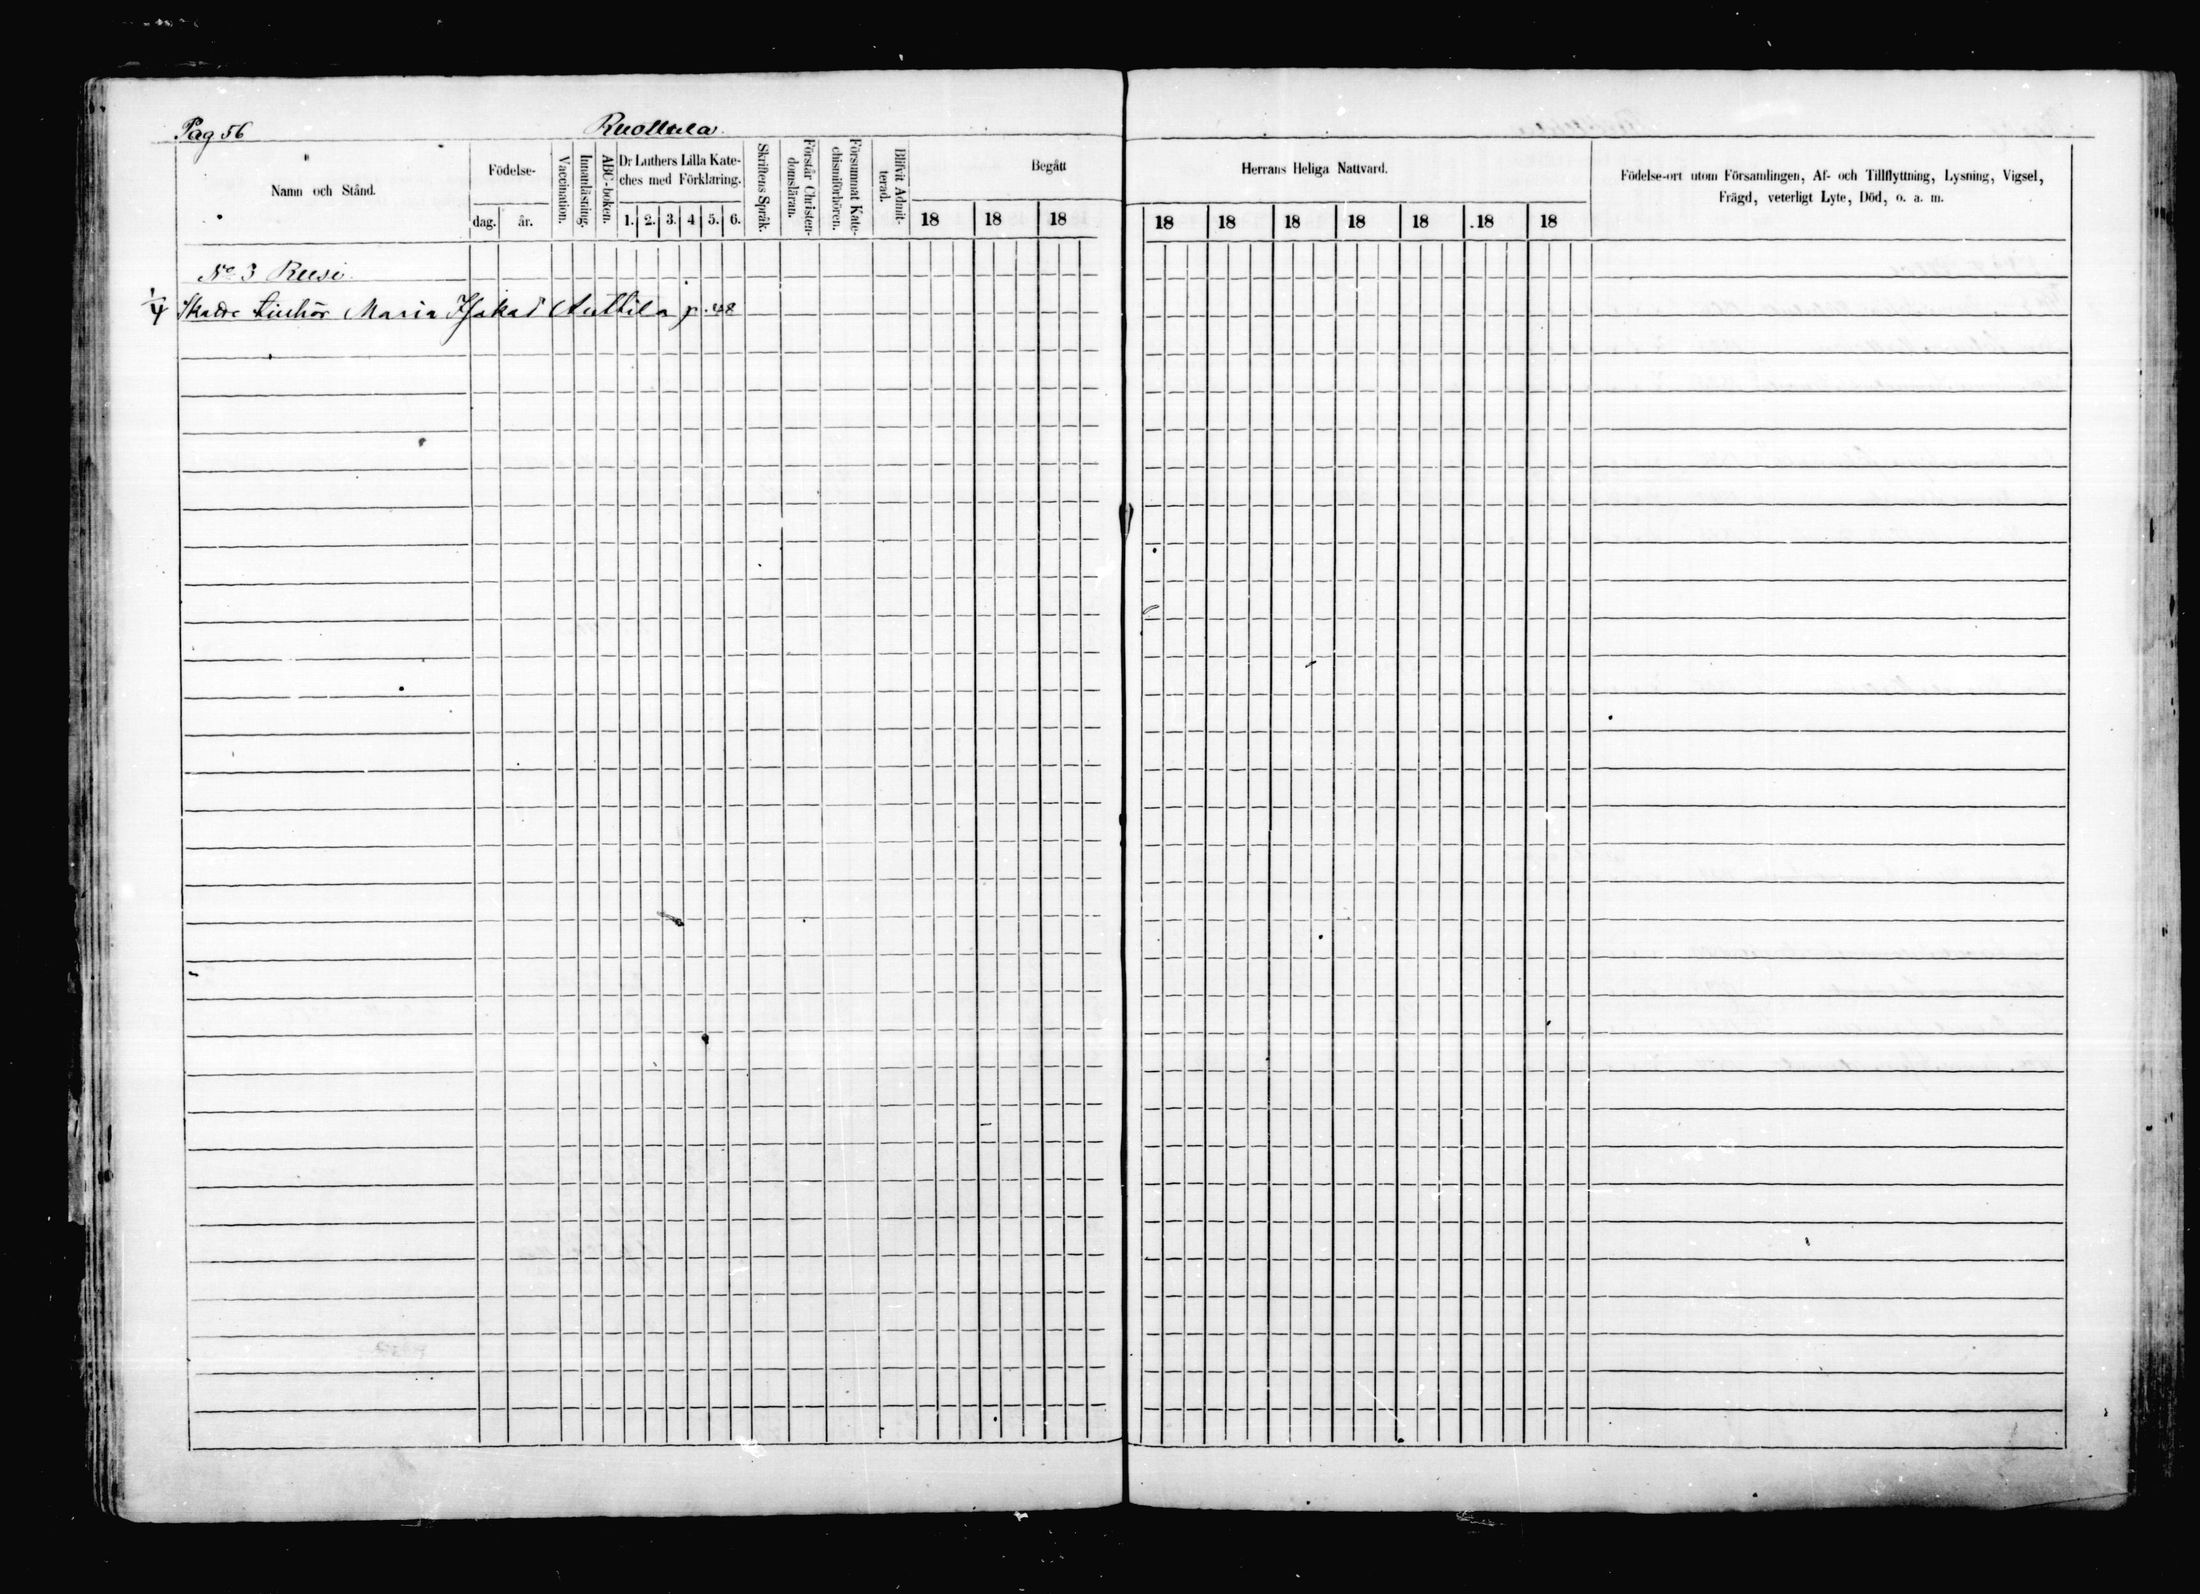 Pag 56
Ruolttila.
Namn och Stånd.
Födelse-
dag. år.
Vaccination.
Innanläsning.
ABC-boken.
Dr Luthers Lilla Kate-
ches med Förklaring.
1. 2. 3. 4 5. 6.
Skriftens Språk.
Förstår Christen-
domsläran.
Försummat Kate-
chismiförhören.
Blifvit Admit-
terad.
Begått
18 18 18
Herrans Heliga Nattvard.
18 18 18 18 18 .18 18
Födelse-ort utom Församlingen, Af- och Tillflyttning, Lysning, Vigsel,
Frägd, veterligt Lyte, Död, o. a. m.
No 3 Reesi.
1/4 Skatte Maria Isakad Anttila p. 48